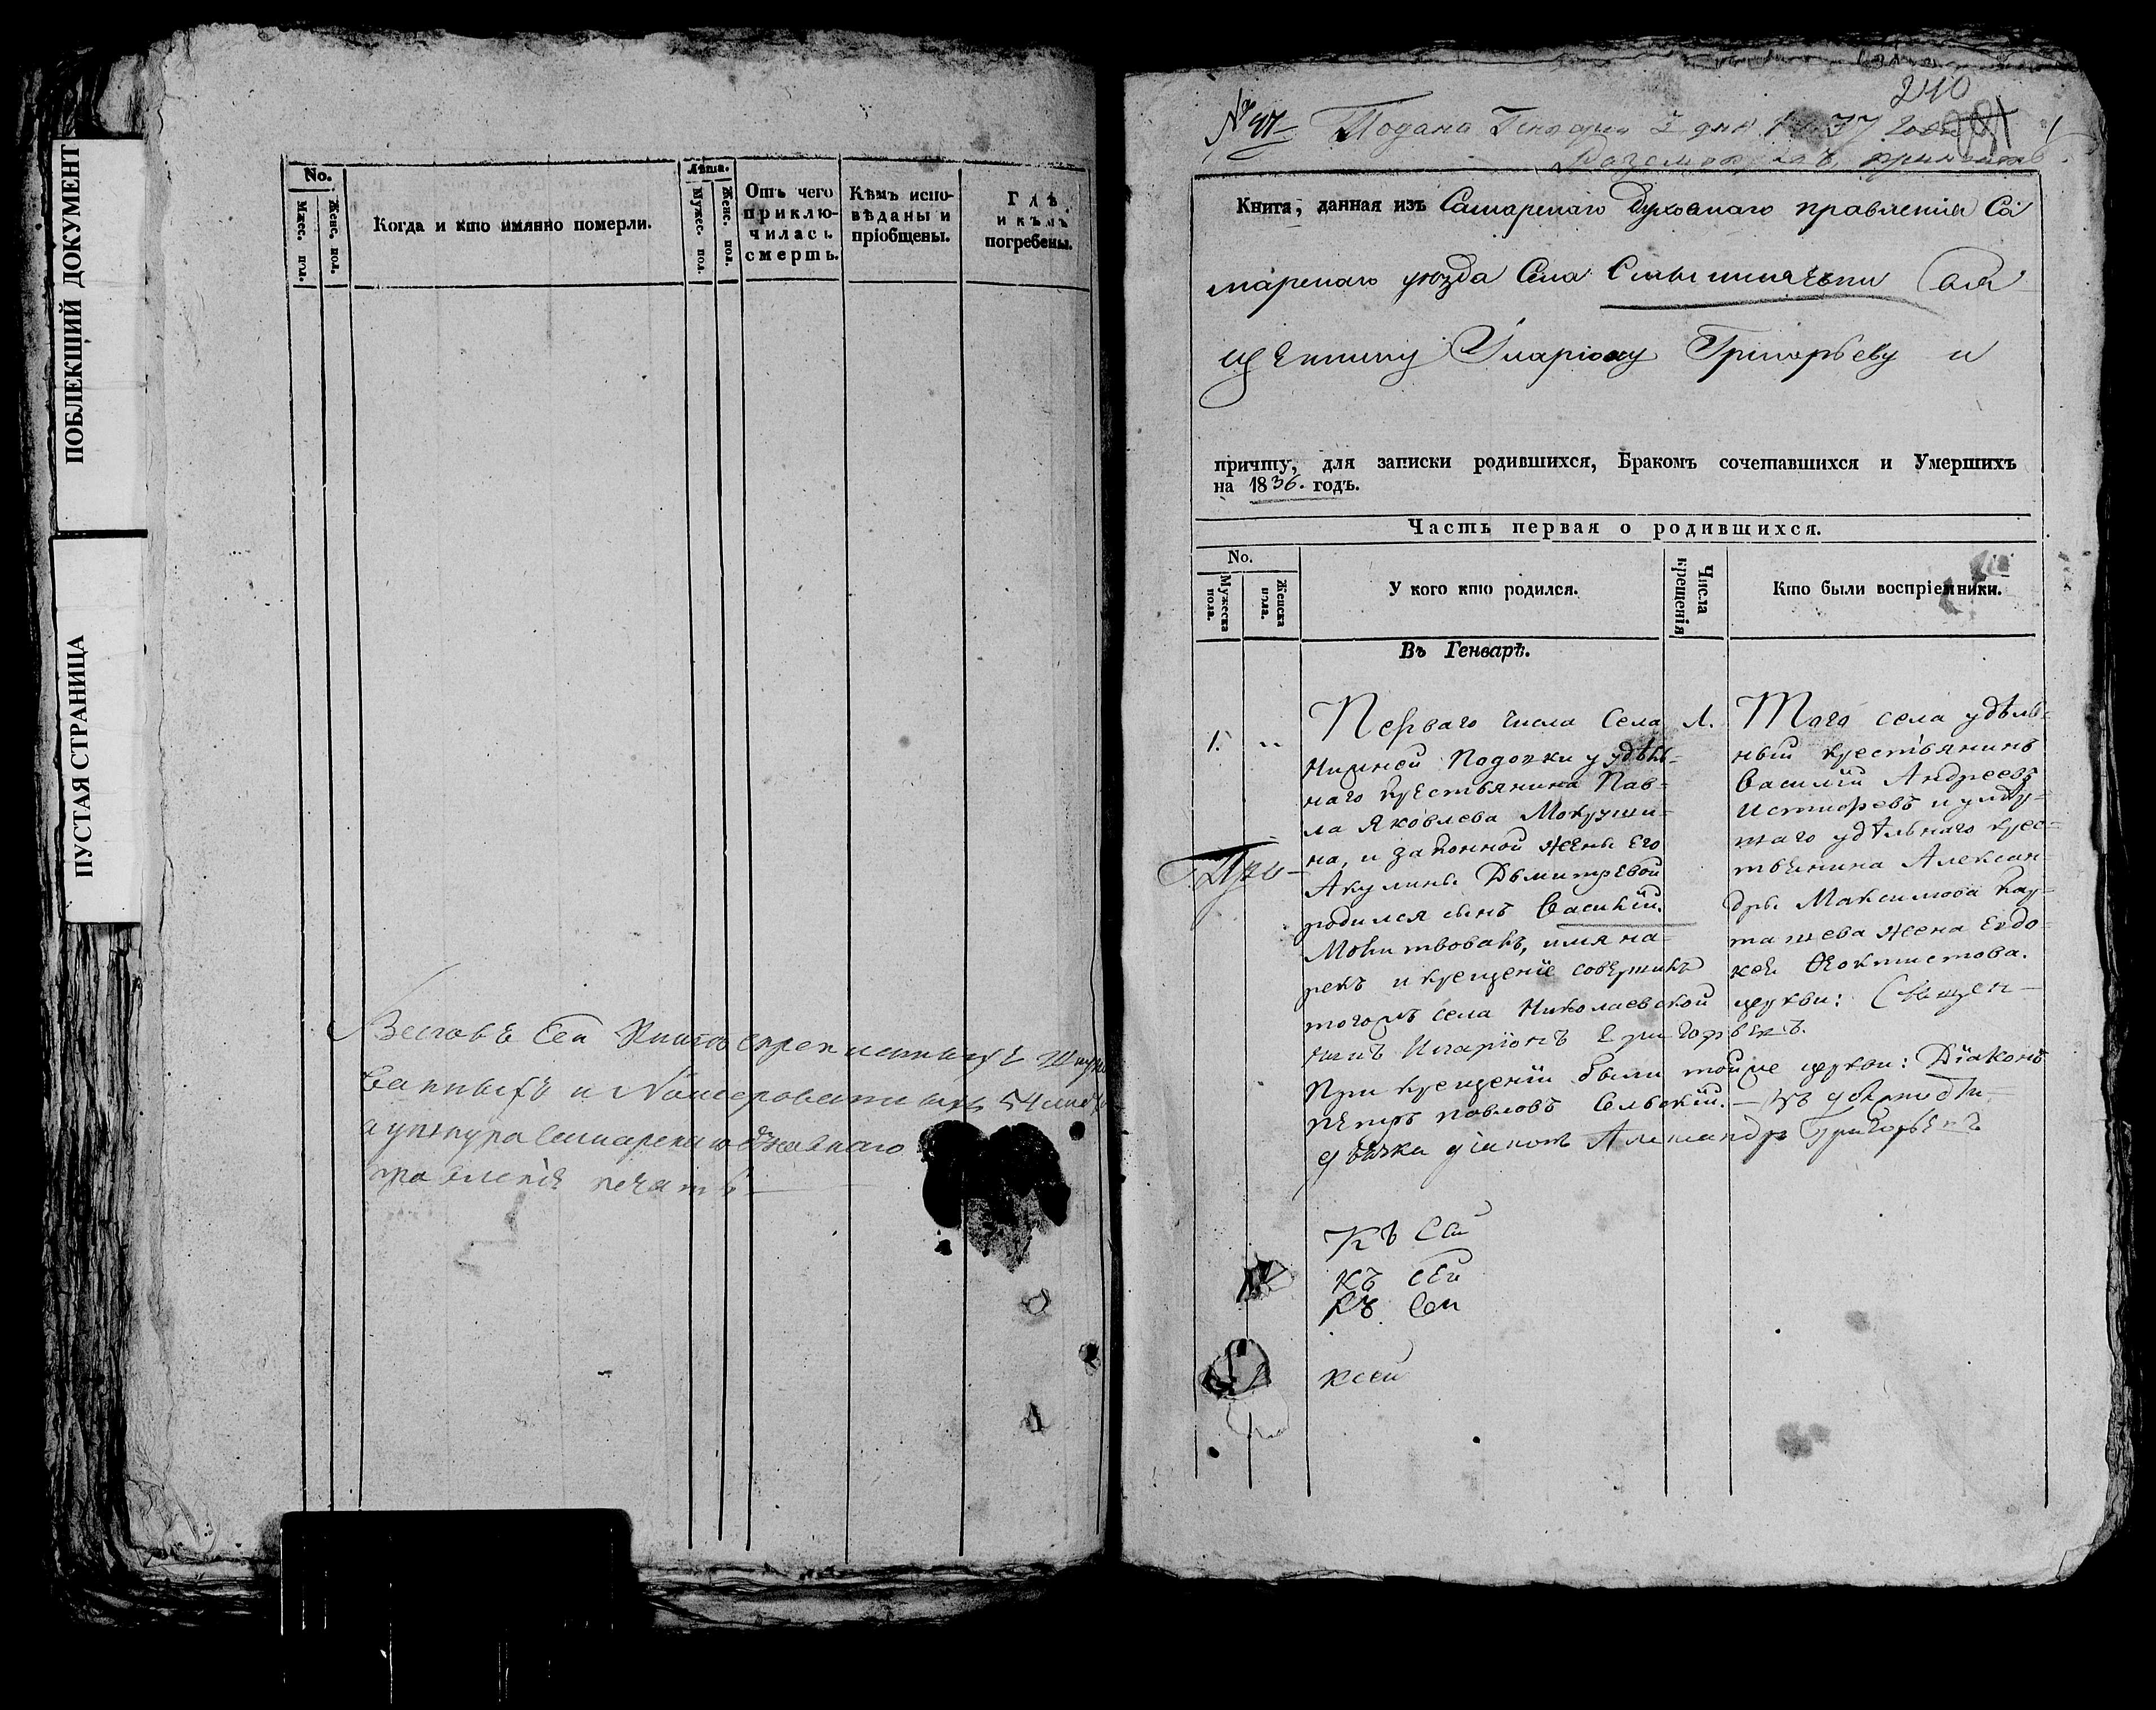 ПОБЛЕКШИЙ ДОКУМЕНТ
ПУСТАЯ СТРАНИЦА
No.
Мжес. пол.
Женс. пол.
Когда и кто имянно померли.
Лѣта.
Мужес. пол.
Женс. пол.
Отъ чего
приклю-
чилась
смерть.
Кѣмъ испо-
вѣданы и
пріобщены.
Гдѣ
и кѣмъ
погребены.
Всего въ сей Книге скрепленныхъ
ванныхъ и Номерованныхъ 54
Самарскаго духовнаго
правленія печать
240
Подана Генваря 2 дня 1837 года
Книга, данная изъ Самарскаго Духовнаго правленія Са
марскаго уѣзда Села Свя
щеннику Иларіону Григорьеву и
причту, для записки родившихся, Бракомъ сочетавшихся и Умершихъ
на 1836. годъ.
Часть первая о родившихся.
No.
Мужеска пола.
Женска пола.
У кого кто родился.
Числа крещенія
Кто были воспріемники.
Въ Генварѣ.
1.
Перваго числа Села
Нижней Подочки у удѣль-
наго крестьянина Пав-
ла Яковлева Мокруши-
на, и законной жены его
Акулины Дьмитревой
родился сынъ Василій.
Молитвовалъ, имя на-
рекъ и крещеніе совершилъ
тогожъ села Николаевской церкви: Священ-
никъ Иларіонъ Григорьевъ.
При крещеніи были тойже церкви: Діаконъ
Петръ Павловъ Сельскій.
діаконъ Александръ Григорьевъ
1.
Того села удѣль-
ный крестьянинъ
Василій Андреевъ
таго удѣльнаго крес-
тьянина Алексан-
дры Максимова Кар-
ташева жена Евдо-
кея Феоктистова.
Къ сей
къ сей
къ сей
ксей